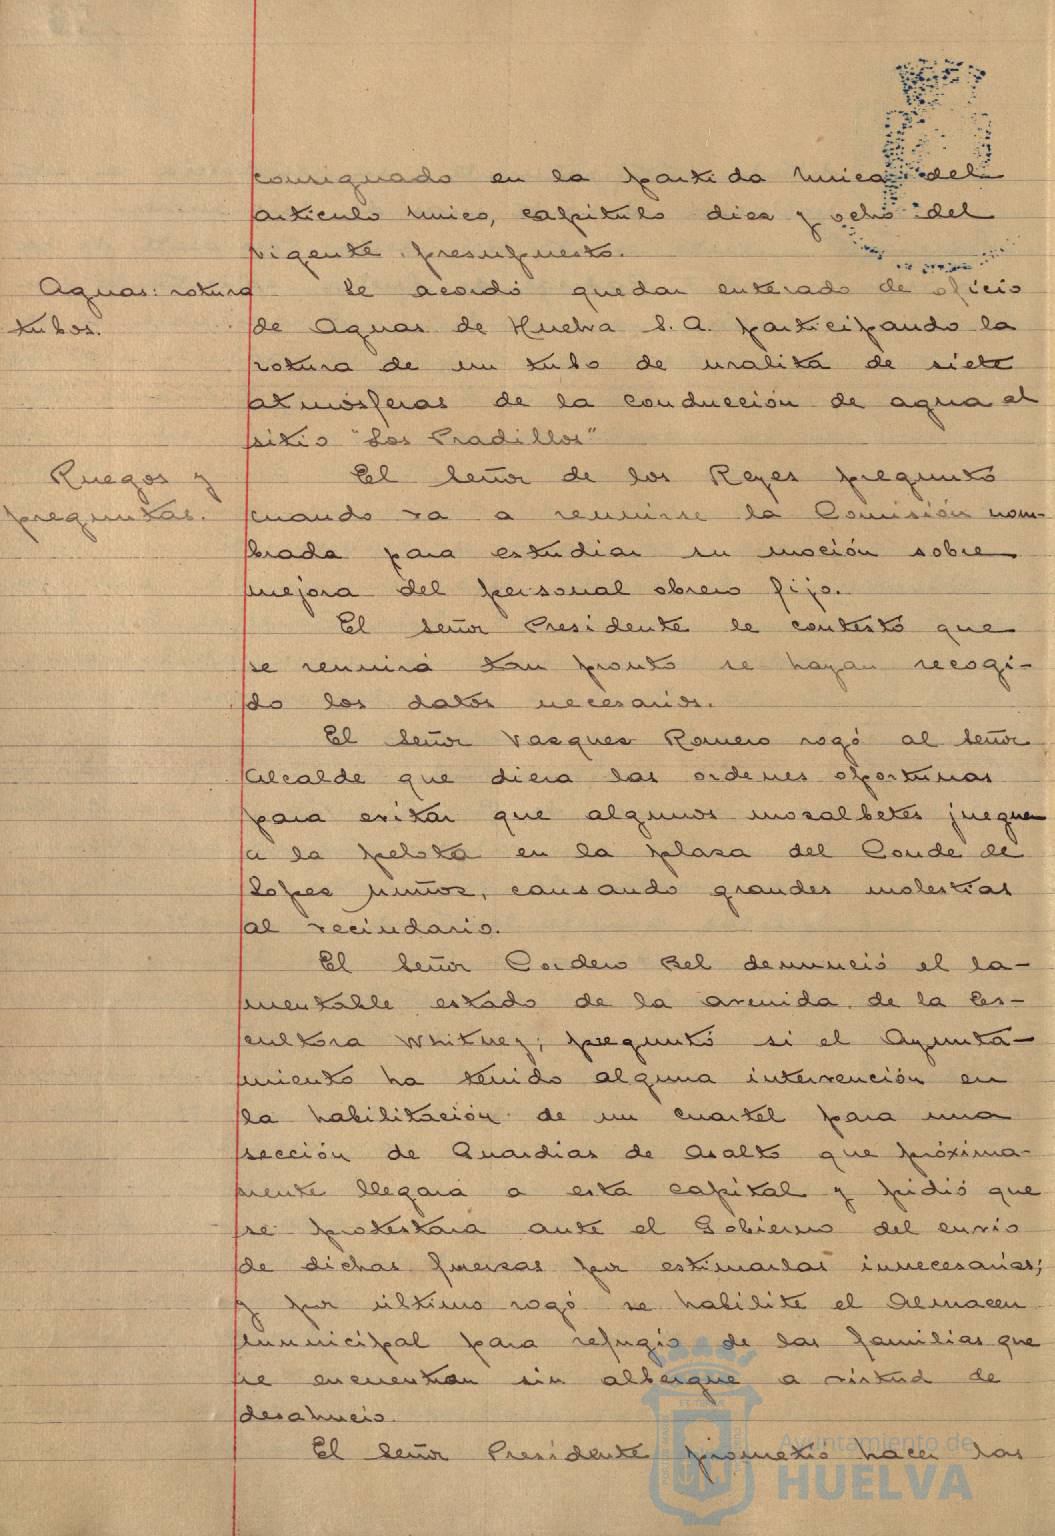 consignado en la partida única del
artículo único, capítulo diez y ocho del
vigente presupuesto.
Aguas: rotura
tubos.
Se acordó quedar enterado de oficio
de Aguas de Huelva S. A. participando la
rotura de un tubo de uralita de siete
atmósferas de la conducción de agua al
sitio "Los Pradillos"
Ruegos y
preguntas.
El Señor de los Reyes preguntó
cuando va a reunirse la Comisión nom-
brada para estudiar su moción sobre
mejora del personal obrero fijo.
El Señor Presidente le contestó que
se reunirá tan pronto se hayan recogi-
do los datos necesarios.
El Señor Vazquez Romero rogó al Señor
Alcalde que diera las ordenes oportunas
para evitar que algunos mozalbetes jueguen
a la pelota en la plaza del Conde de
López Muñoz, causando grandes molestias
al vecindario.
El Señor Cordero Bel denunció el la-
mentable estado de la avenida de la Es-
cultora Whitney; preguntó si el Ayunta-
miento ha tenido alguna intervención en
la habilitación de un cuartel para una
sección de Guardias de Asalto que próxima-
mente llegará a esta capital y pidió que
se protestara ante el Gobierno del envío
de dichas fuerzas por estimarlas innecesarias;
y por último rogó se habilite el Almacen
municipal para refugio de las familias que
se encuentran sin albergue a virtud de
desahucio.
El Señor Presidente prometió hacer las
Ayuntamiento de
HUELVA